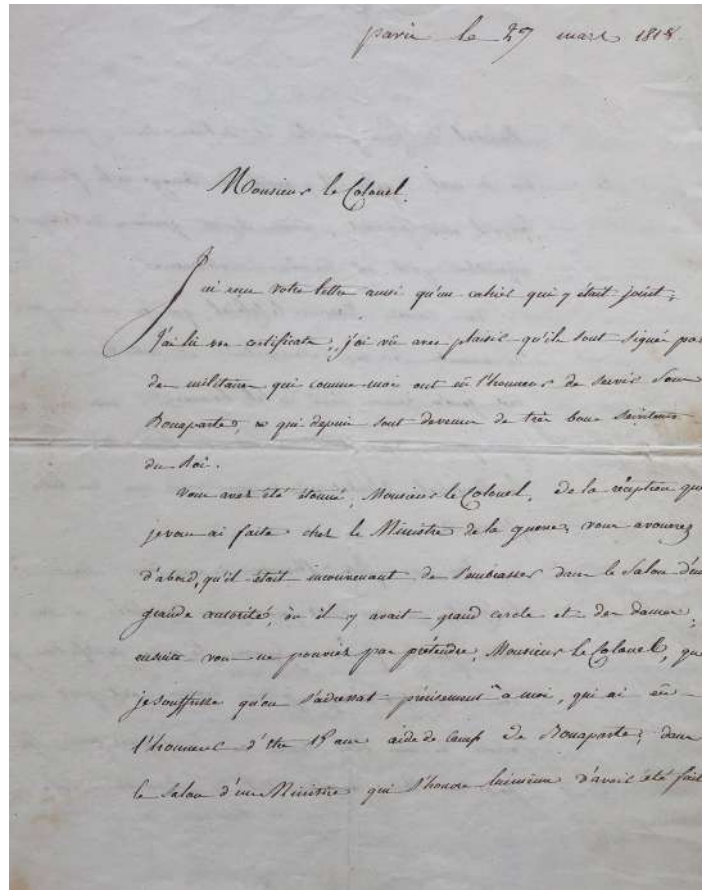 paris le 27 mars 1818
Monsieur le Colonel.
J'ai reçu votre lettre aussi qu'un cahier qui y était joint;
J'ai lu vos certificats; j'ai vu avec plaisir qu'ils sont signés par
des militaires qui comme moi ont eu l'honneur de servir sous
Bonaparte, et qui depuis sont devenus de très bons
du Roi.
Vous avez été étonné, Monsieur le Colonel, de la réception que
je vous ai faite chez le Ministre de la guerre; vous avouerez
d'abord, qu'il était inconvenant de s'embrasser dans le Salon d'une
grande autorité, où il y avait grand cercle et des dames;
ensuite vous ne pouviez pas prétendre, Monsieur le Colonel, que
je souffrisse qu'on s'adressat précisement a moi, qui ai eu
l'honneur d'être aide de camp de Bonaparte; dans
le Salon d'un Ministre qui s'honore luimême d'avoir été fait